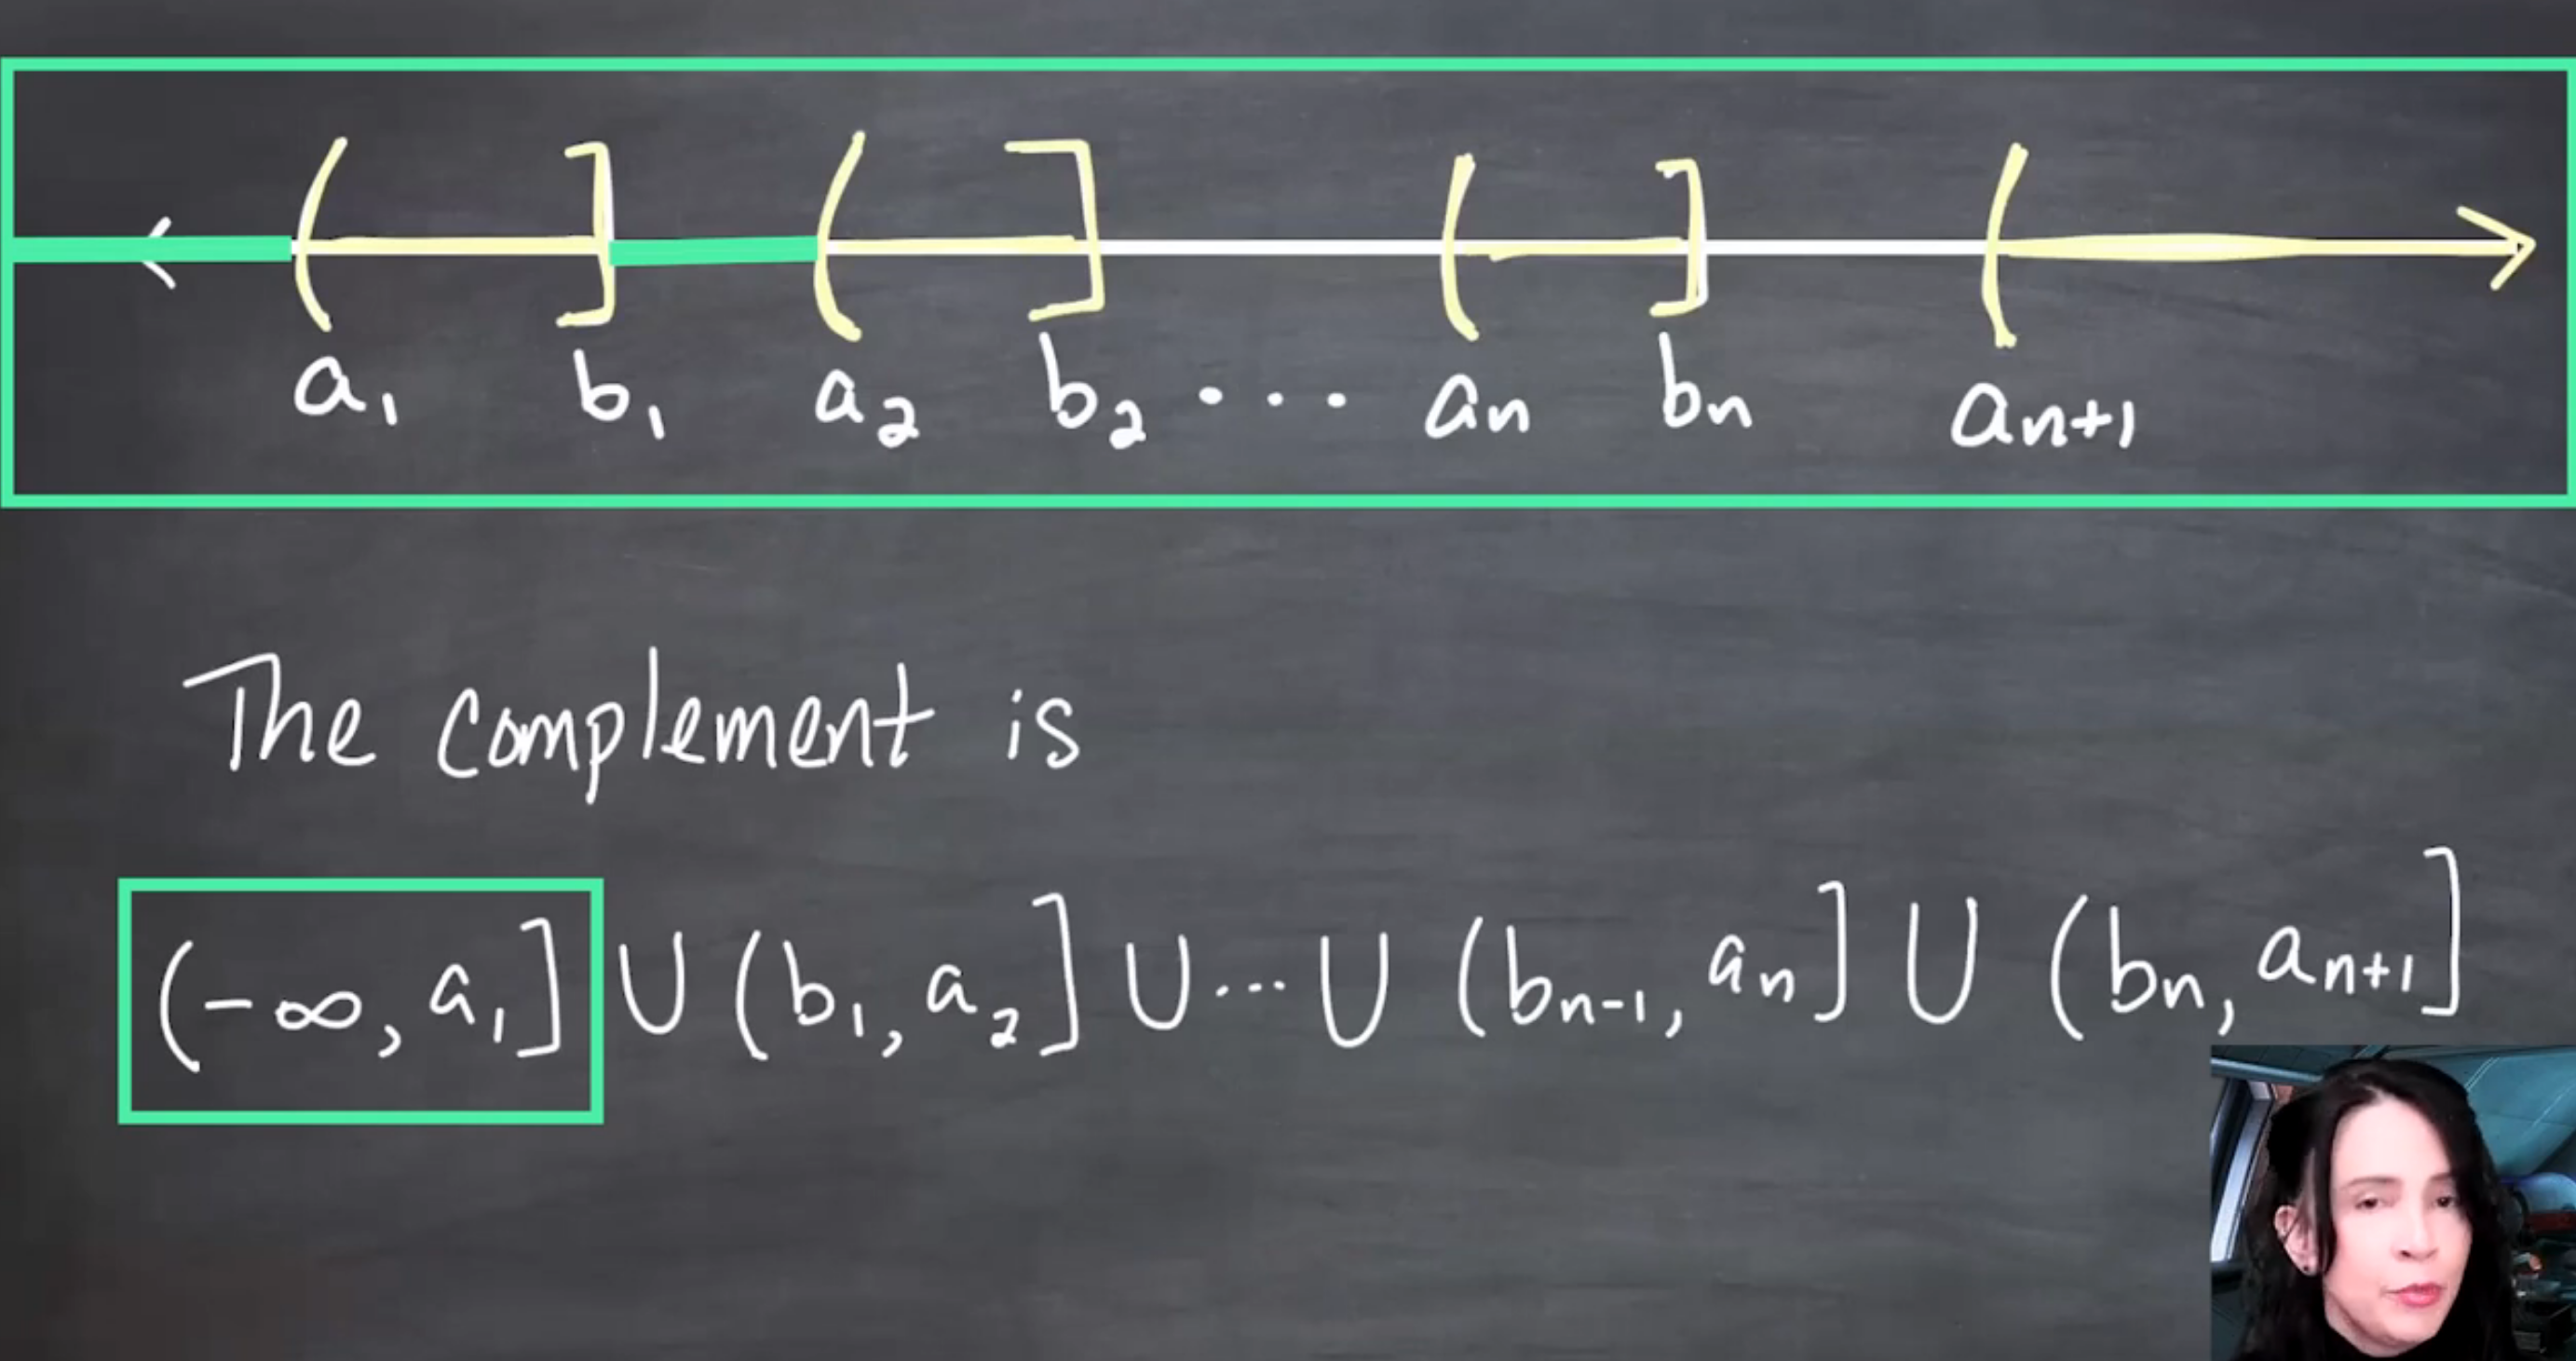 ( ] ( ] ( ] (
a₁ b₁ a₂ b₂ ... aₙ bₙ aₙ₊₁
The complement is
(-∞, a₁] ∪ (b₁, a₂] ∪ ... ∪ (bₙ₋₁, aₙ] ∪ (bₙ, aₙ₊₁]